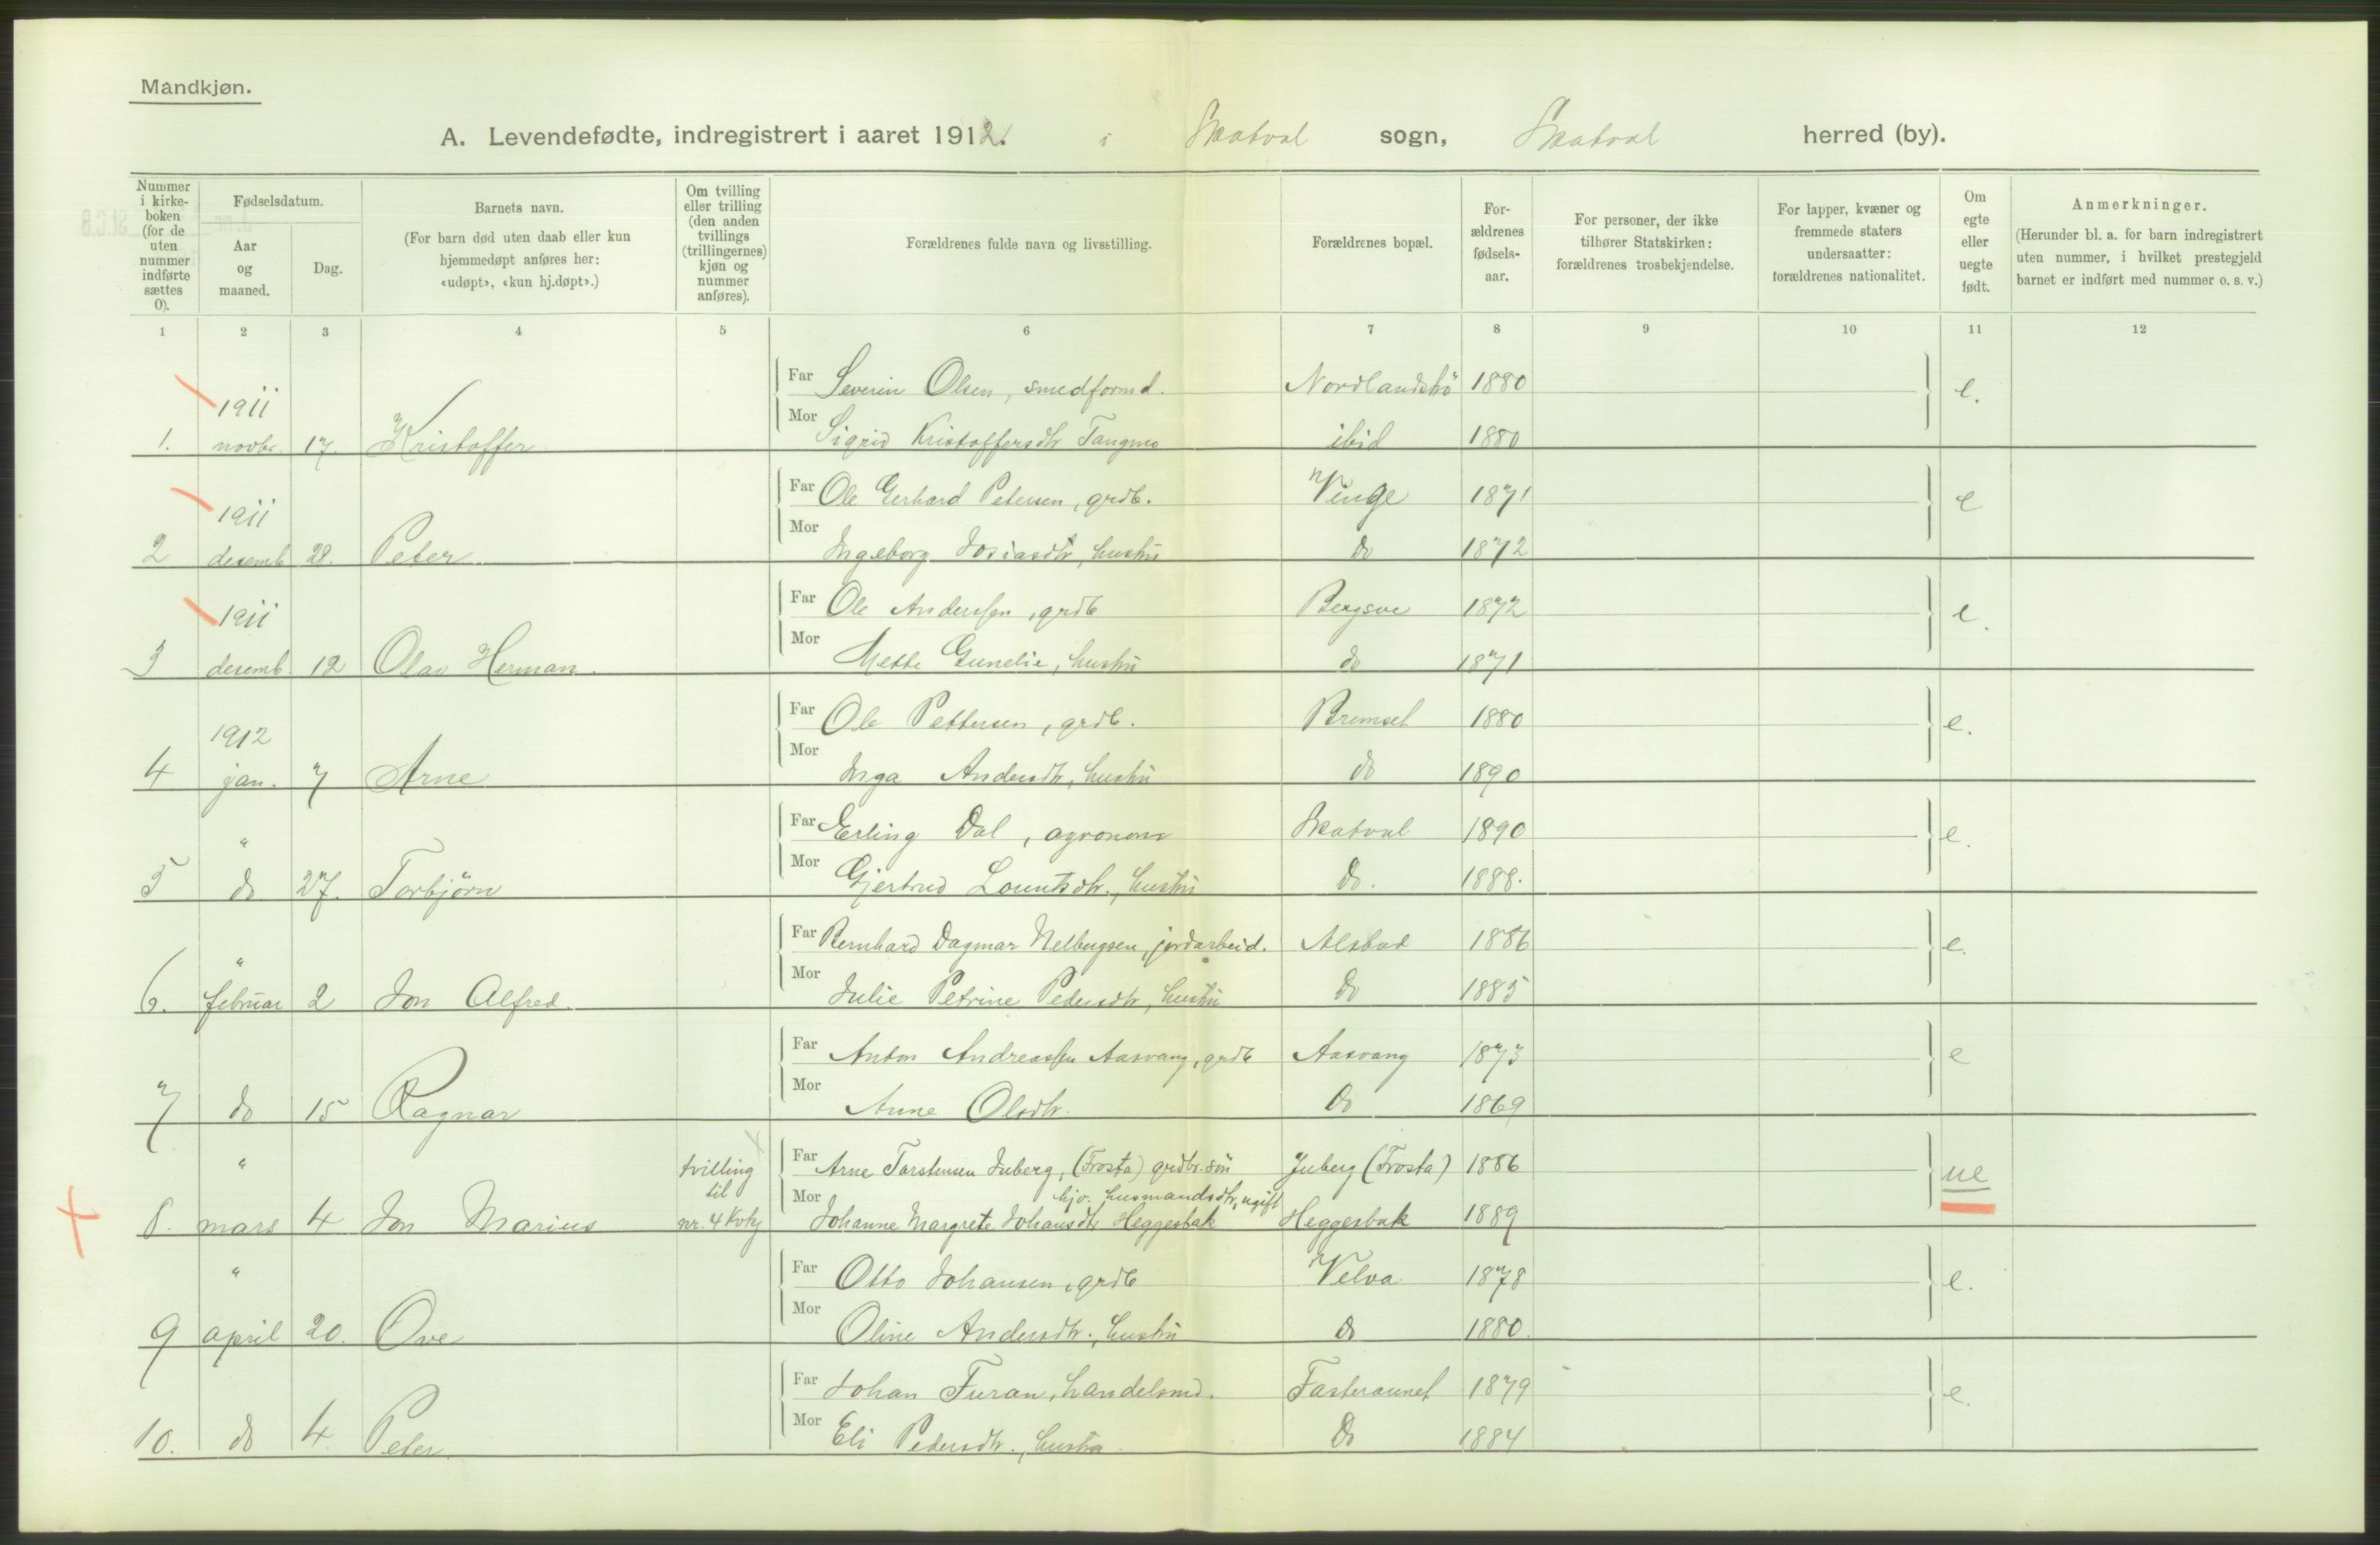 Mandkjøn.
A. Levendefødte, indregistrert i aaret 1912. i Skatval sogn, Skatval herred (by).
Nummer i kirke-boken (for de uten nummer indførte sættes 0).
Fødselsdatum.
Aar og maaned.
Dag.
Barnets navn.
(For barn død uten daab eller kun hjemmedøpt anføres her: «udøpt», «kun hj.døpt».)
Om tvilling eller trilling (den anden tvillings (trillingernes) kjøn og nummer anføres).
Forældrenes fulde navn og livsstilling.
Forældrenes bopæl.
For-ældrenes fødsels-aar.
For personer, der ikke tilhører Statskirken: forældrenes trosbekjendelse.
For lapper, kvæner og fremmede staters undersaatter: forældrenes nationalitet.
Om egte eller uegte født.
Anmerkninger.
(Herunder bl. a. for barn indregistrert uten nummer, i hvilket prestegjeld barnet er indført med nummer o. s. v.)
1 2 3 4 5 6 7 8 9 10 11 12
1911 Far Severin Olsen, smedformd. Nordlandsbrö 1880 e.
1. novbr. 17. Kristoffer Mor Sigrid Kristoffersdtr Tangmo ibid 1880
1911 Far Ole Gerhard Petersen, grdb. Vinge 1871 e
2 desemb 28. Peter Mor Ingeborg Josiasdtr, hustru do 1872
1911 Far Ole Anderssen, grdb Bergsve 1872 e.
3 desemb. 12 Olav Herman Mor Mette Gunelie, hustru do 1871
1912 Far Ole Pettersen, grdb. Bremset 1880 e.
4 jan. 7 Arne Mor Inga Andersdtr, hustru do 1890
" Far Erling Dal, agronom Skatval 1890 e.
5 do 27. Torbjörn Mor Gjertrud Lorntsdtr., hustru do. 1888.
" Far Bernhard Dagmar Nelbergsen, jordarbeid. Alstad 1886 e.
6. februar 2 Jon Alfred Mor Julie Petrine Pedersdtr, hustru do 1885
Far Anton Andreassen Aasvang, grdb Aasvang 1873 e
7 do 15 Ragnar Mor Anne Olsdtr. do 1869
" tvilling til Far Arne Torstensen Juberg, (Frosta) grdbr.sön Juberg (Frosta) 1886 ue
hjv. husmandsdtr, ugift
8. mars 4 Jon Marius nr. 4 Kvkj Mor Johanne Margrete Johansdtr Heggesbak Heggesbak 1889
" Far Otto Johansen, grdb Velva 1878 e.
9 april 20. Ove Mor Oline Andersdtr., hustru do 1880.
Far Johan Furan, handelsmd. Fasteraunet 1879 e.
10. do 4. Peter Mor Eli Pedersdtr., hustru do 1884